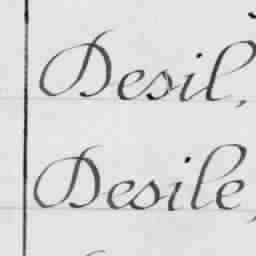 Desil,
Desile,